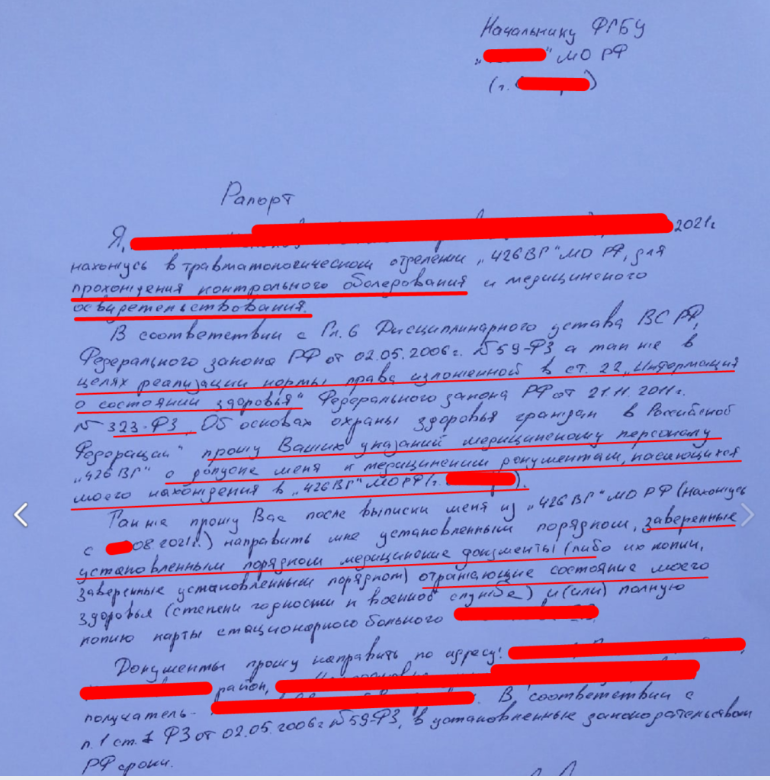 Начальнику ФГБУ
„ " МО РФ
(г. )
Рапорт
Я, 2021г
нахожусь в травматологическом отделении „426 ВГ" МО РФ, для
прохождения контрольного обследования и медицинского
освидетельствования.
В соответствии с Гл. 6 Дисциплинарного устава ВС РФ,
Федерального закона РФ от 02.05.2006г. №59-ФЗ а так же в
целях реализации нормы права изложенной в ст. 22 „Информация
о состоянии здоровья" Федерального закона РФ от 21.11.2011г.
№ 323-ФЗ „Об основах охраны здоровья граждан в Российской
Федерации" прошу Ваших указаний медицинскому персоналу
„426 ВГ" о допуске меня к медицинским документам, касающихся
моего нахождения в „426 ВГ" МО РФ (г. ).
Также прошу Вас после выписки меня из „426 ВГ" МО РФ (нахожусь
с 08.2021г.) направить мне установленным порядком, заверенные
установленным порядком медицинские документы (либо их копии,
заверенные установленным порядком) отражающие состояние моего
здоровья (степени годности к военной службе) и (или) полную
копию карты стационарного больного
Документы прошу направить по адресу:
район,
получатель - . В соответствии с
п. 1 ст. ФЗ от 02.05.2006г №59-ФЗ, в установленные законодательством
РФ сроки.